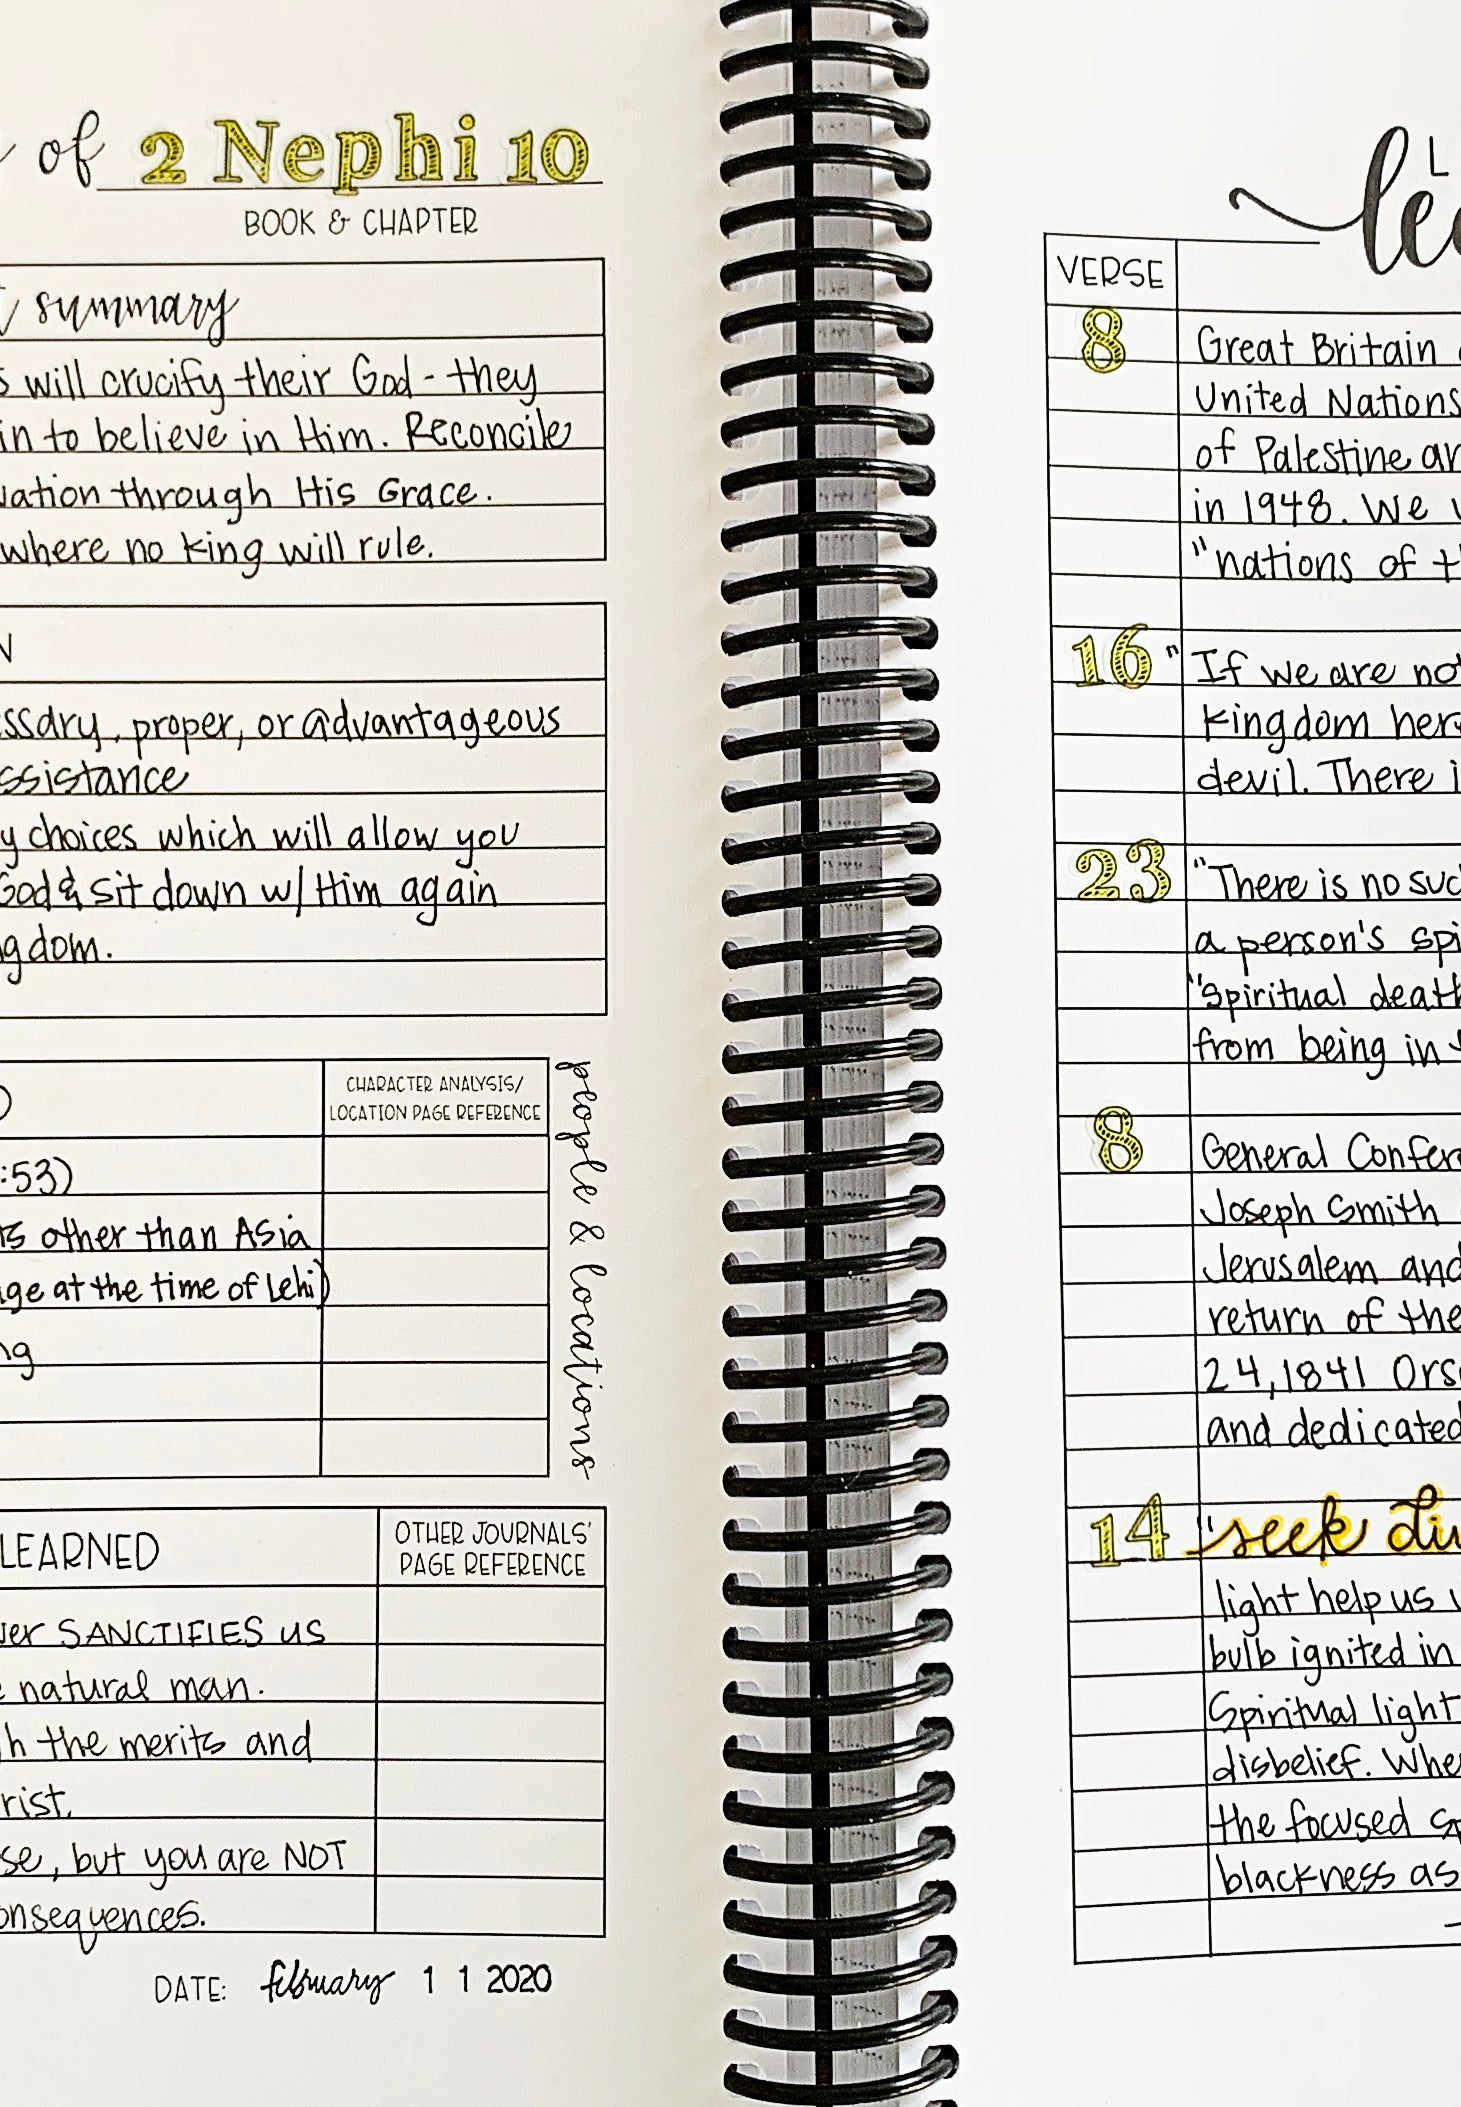 of 2 Nephi 10
BOOK & CHAPTER
summary
will crucify their God - they
in to believe in Him. Reconcile
through His Grace.
where no king will rule.
proper, or advantageous
ssistance
y choices which will allow you
God & sit down w/ Him again
gdom.
CHARACTER ANALYSIS/
LOCATION PAGE REFERENCE
people & locations
:53)
other than Asia
ge at the time of Lehi)
ng
LEARNED
OTHER JOURNALS'
PAGE REFERENCE
er SANCTIFIES us
natural man.
h the merits and
rist.
se, but you are NOT
onsequences.
DATE: february 1 1 2020
VERSE
8 Great Britain
United Nations
of Palestine
in 1948. We
"nations of
16 "If we are
kingdom
devil. There
23 "There is no
a person's
"Spiritual
from being in
8 General
Joseph Smith
Jerusalem and
return of the
24, 1841
and dedicated
14 "seek
light help us
bulb ignited in
Spiritual light
disbelief.
the focused
blackness as